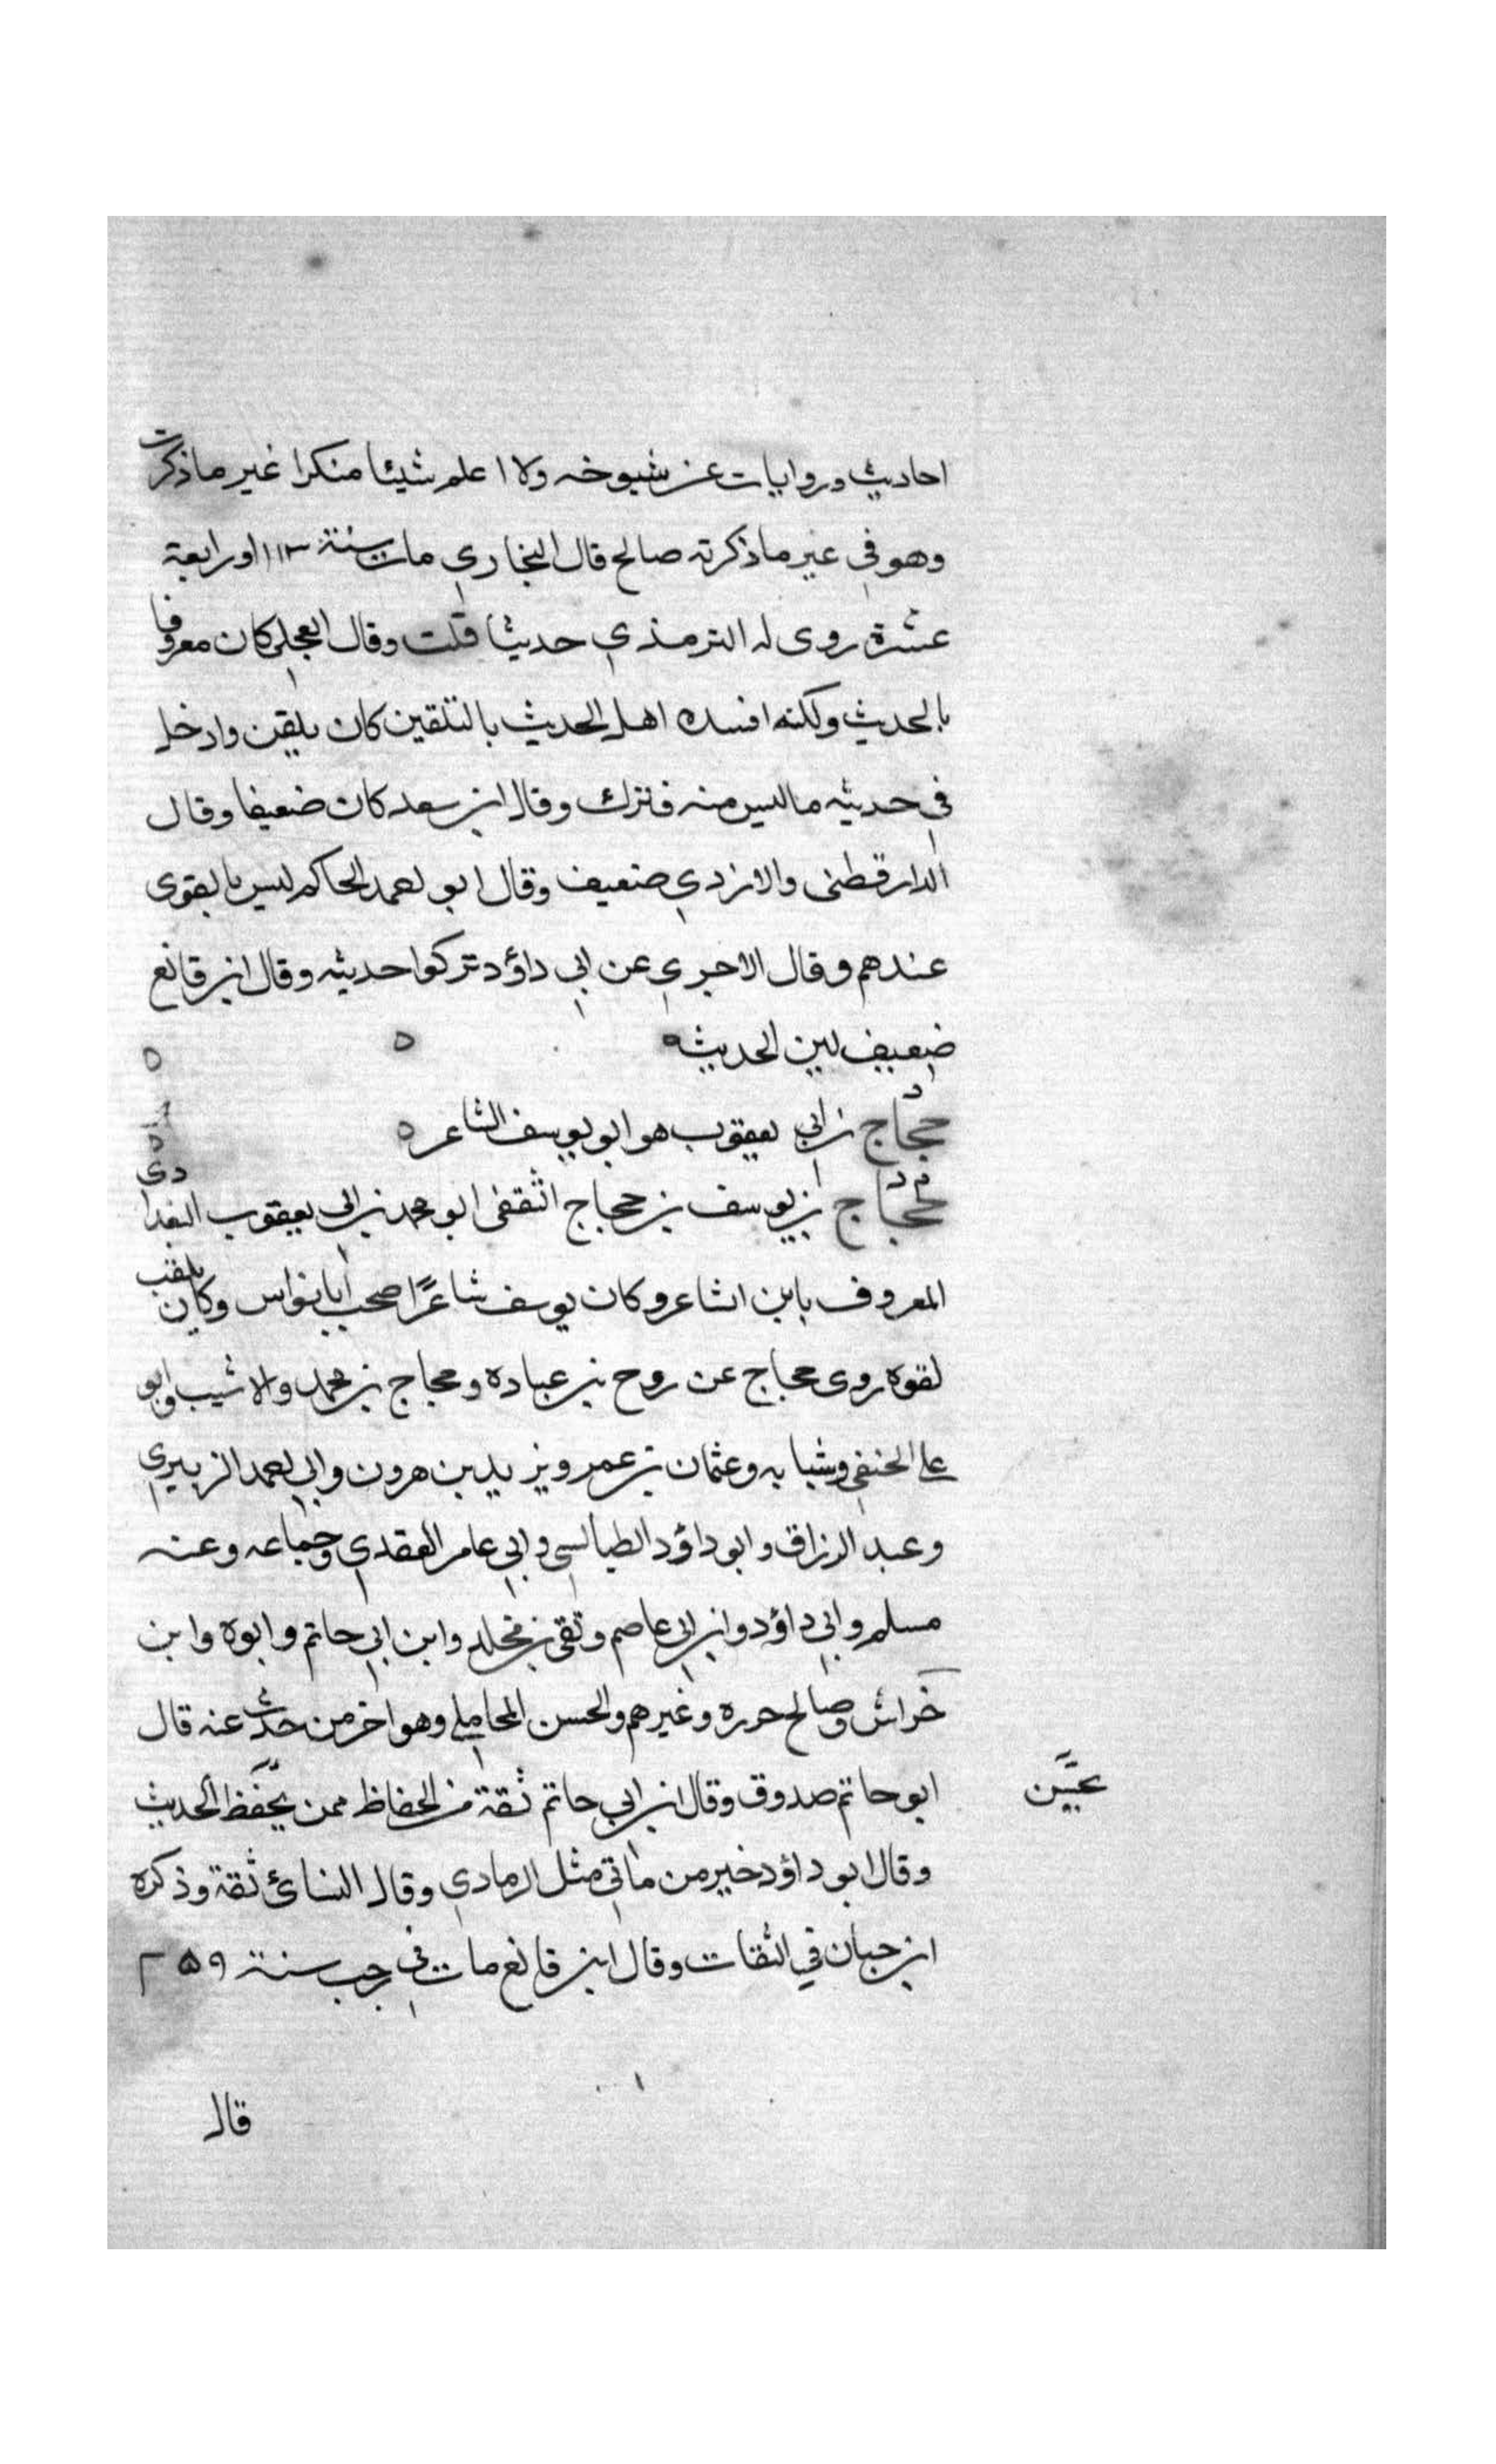 احاديث وروايات عن شيوخه ولا اعلم شيئا منكرا غير ماذكرت
وهو في غير ماذكرته صالح قال البخاري مات سنة ٢١٣ او رابعة
عشرة روى له الترمذي حديثا قلت وقال العجلي كان معروفا
بالحديث ولكنه افسده اهل الحديث بالتلقين كان يلقن وادخل
في حديثه ماليس منه فترك وقال ابن سعد كان ضعيفا وقال
الدارقطنى والازدي ضعيف وقال ابو احمد الحاكم ليس بالقوى
عندهم وقال الاجري عن ابي داؤد تركوا حديثه وقال ابن قانع
ضعيف لين الحديث ه
حجاج بن ابي يعقوب هو ابو يوسف الشاعر ه
م د حجاج بن يوسف بن حجاج الثقفى ابو محمد بن ابي يعقوب البغدادى
المعروف بابن الشاعر وكان يوسف شاعرًا صحب ابا نواس وكان يلقب
لقوه روى حجاج عن روح بن عباده وحجاج بن محمد والاشيب وابو
على الحنفي وشبابه وعثمان بن عمر ويزيد بن هرون وابي احمد الزبيري
وعبد الرزاق وابو داؤد الطيالسى وابي عامر العقدي وجماعه وعنه
مسلم وابي داؤد وابن ابي عاصم وبقى بن مخلد وابن ابي حاتم وابوه وابن
خراش وصالح حرره وغيرهم والحسن المحاملي وهو اخر من حدث عنه قال
ابو حاتم صدوق وقال ابن ابي حاتم ثقة من الحفاظ ممن يحفظ الحديث
وقال ابو داؤد خير من مأتي مثل الرمادي وقال النسائ ثقة وذكره
ابن حبان في الثقات وقال ابن قانع مات في رجب سنة ٢٥٩
قال